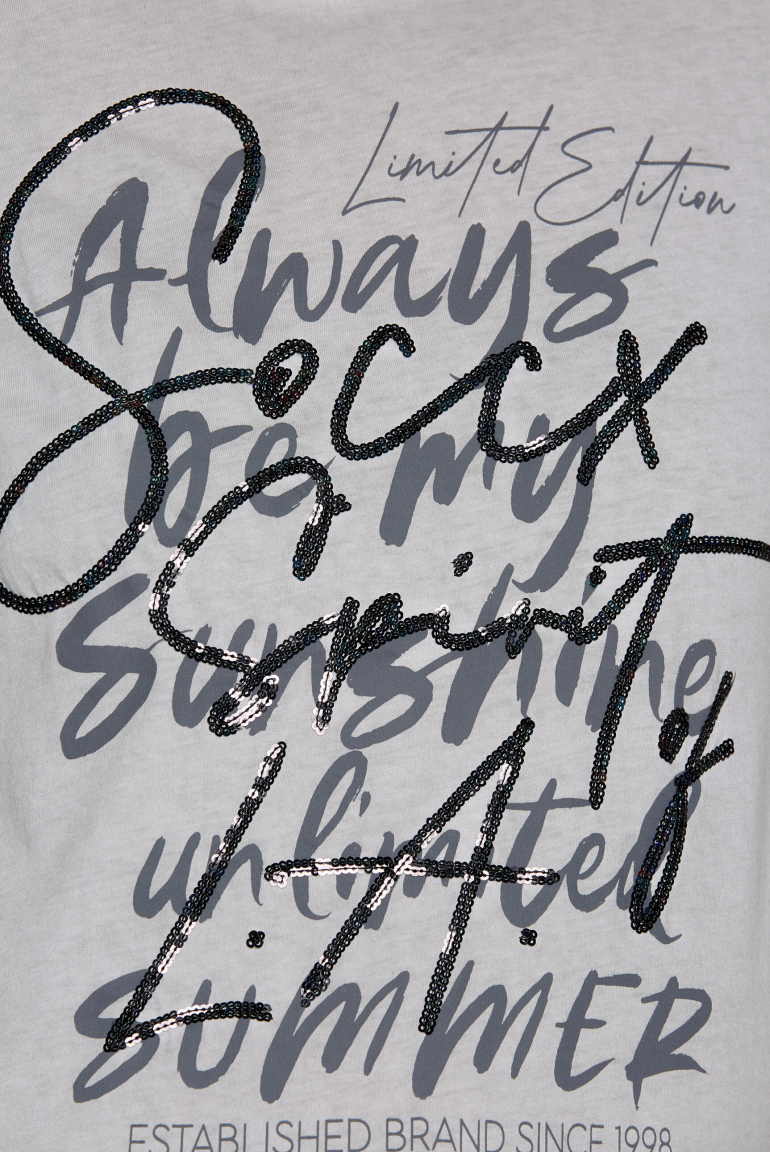 Limited Edition
Always
Soccx
be my
Spirit
sunshine
of
unlimited
L.A.
SUMMER
ESTABLISHED BRAND SINCE 1998